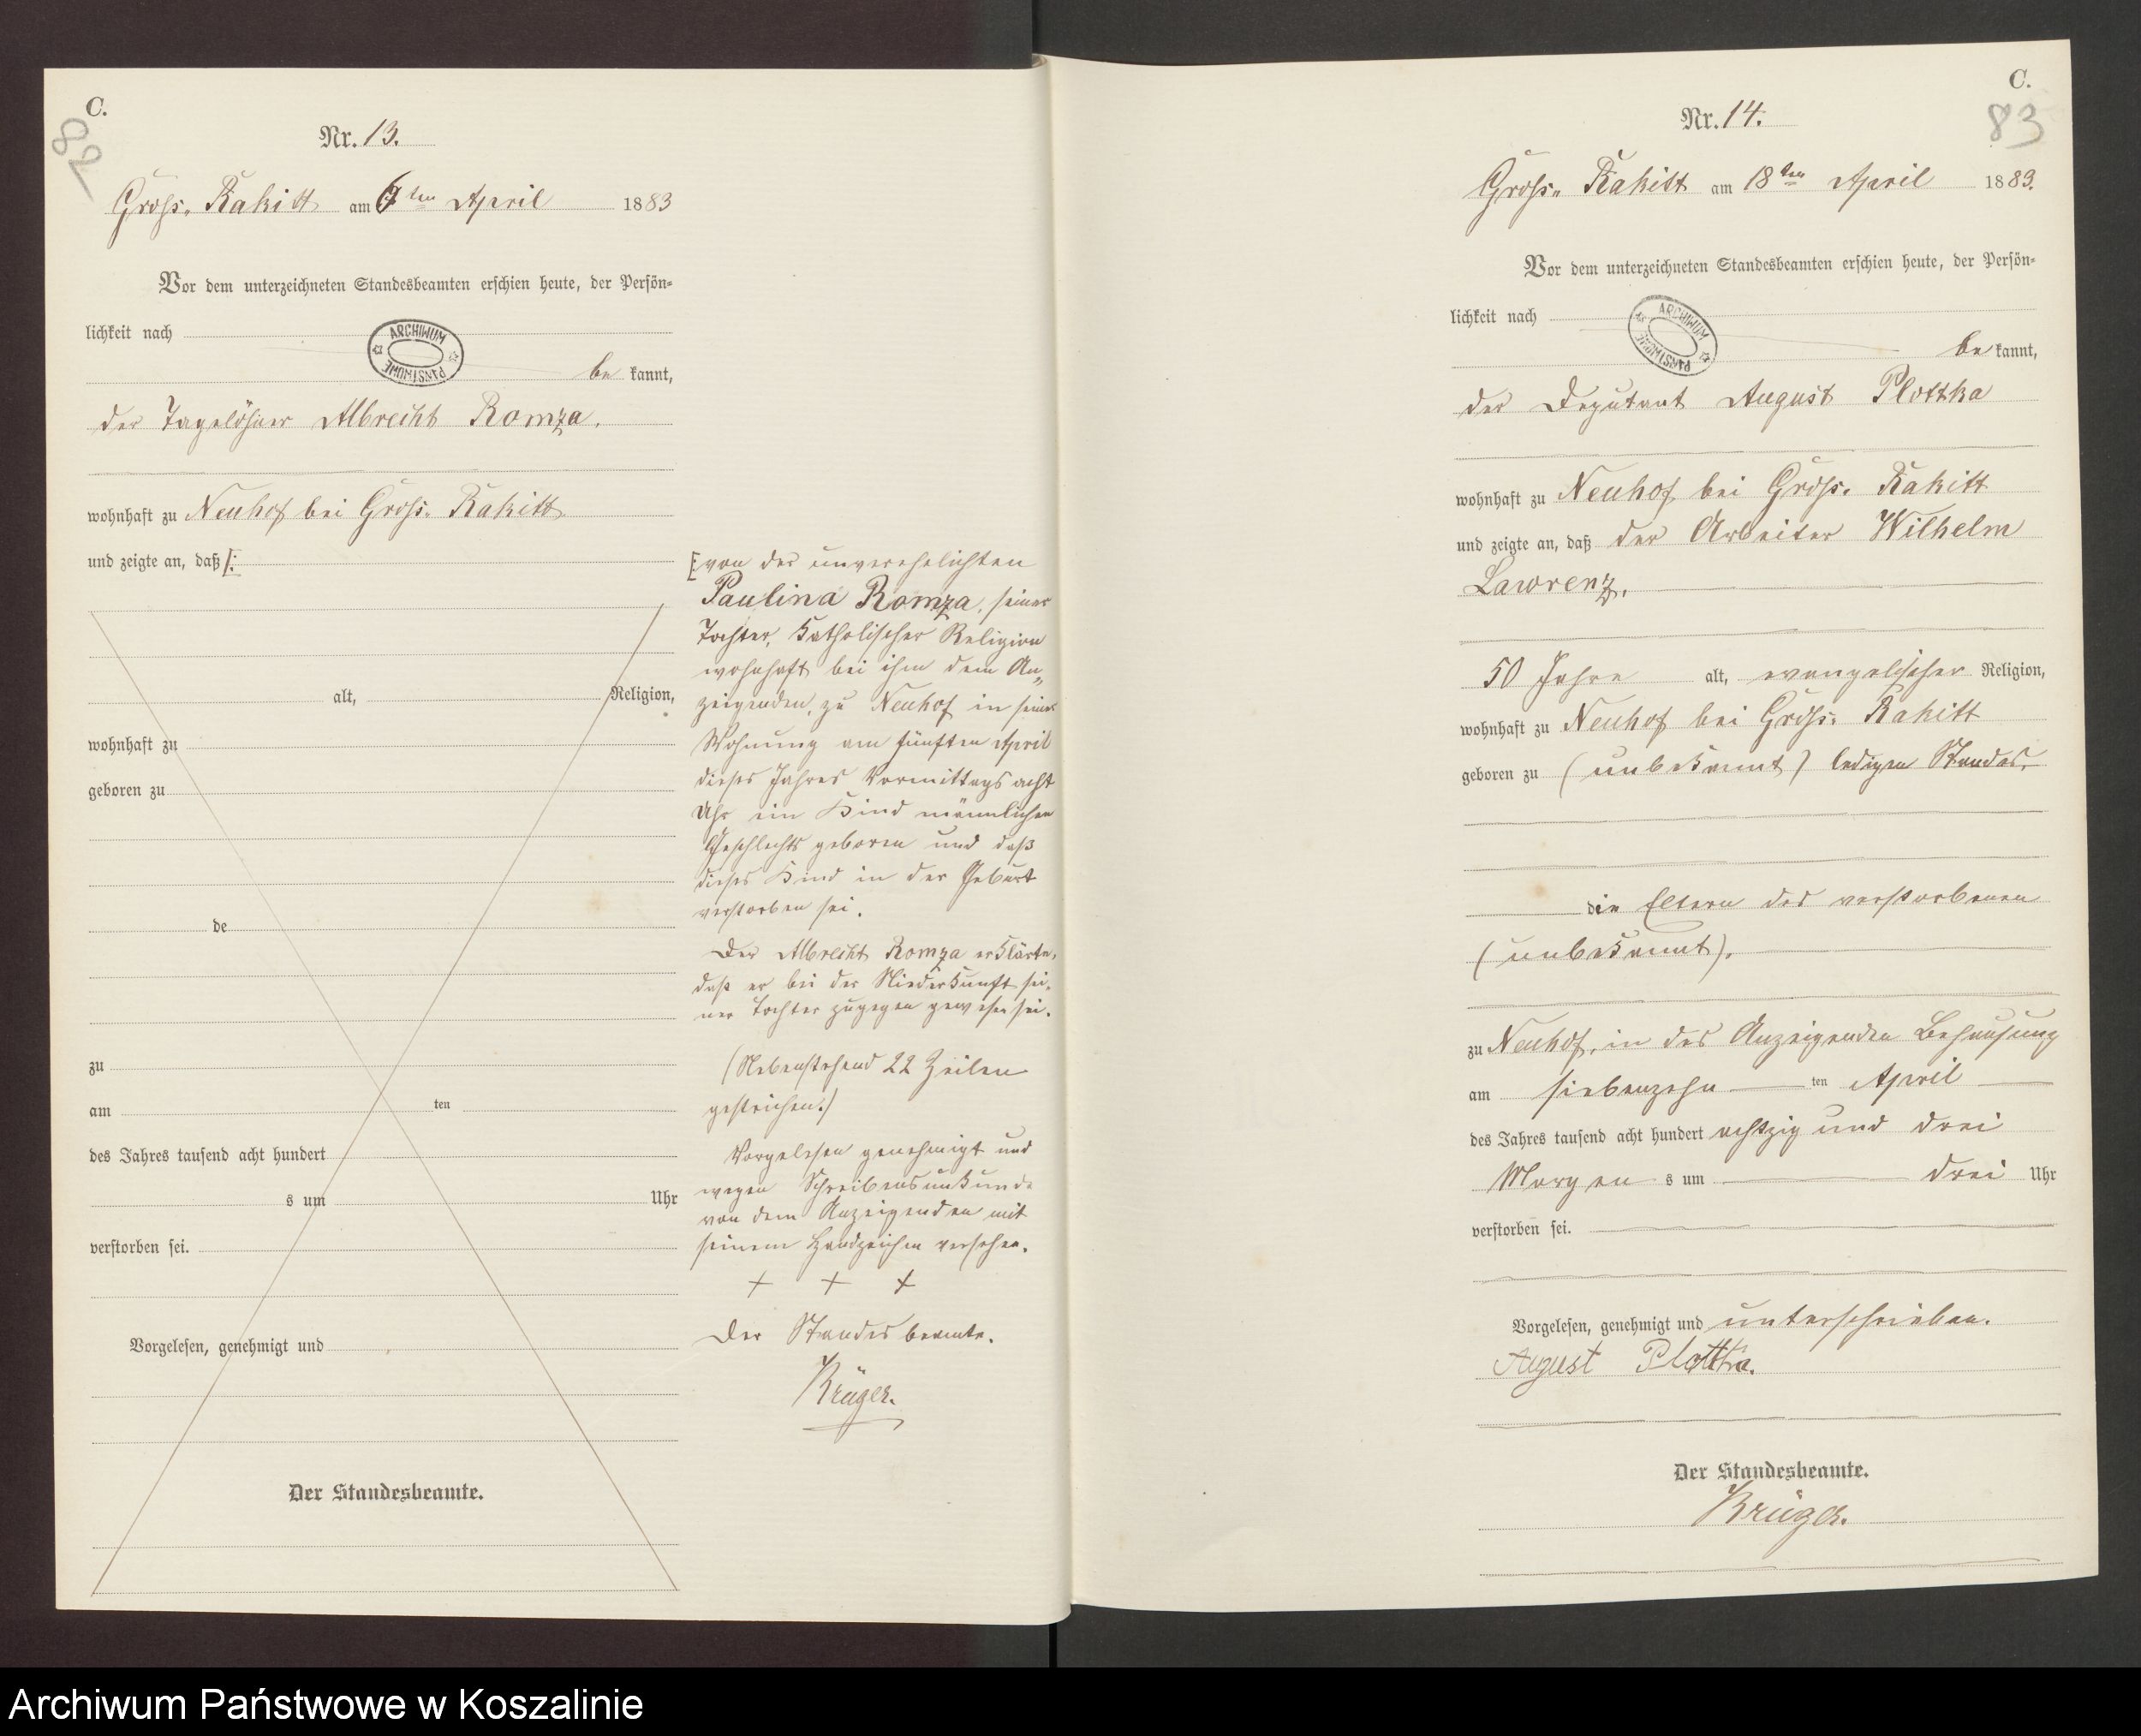 C.
82
Nr. 13.
Gross. Rakitt am 6ten April 1883
Vor dem unterzeichneten Standesbeamten erschien heute, der Persön-
lichkeit nach
ARCHIWUM PAŃSTWOWE
be kannt,
der Tagelöhner Albrecht Romza.
wohnhaft zu Neuhof bei Gross. Rakitt
und zeigte an, daß [:
alt, Religion,
wohnhaft zu
geboren zu
de
zu
am ten
des Jahres tausend acht hundert
s um Uhr
verstorben sei.
Vorgelesen, genehmigt und
Der Standesbeamte.
[von der unverehelichten
Paulina Romza, seiner
Tochter, katholischer Religion
wohnhaft bei ihm dem An-
zeigenden, zu Neuhof in seiner
Wohnung am fünften April
dieses Jahres Vormittags acht
Uhr ein Kind männlichen
Geschlechts geboren und daß
dieses Kind in der Geburt
verstorben sei.
Der Albrecht Romza erklärte,
daß er bei der Niederkunft sei-
ner Tochter zugegen gewesen sei.
(Nebenstehend 22 Zeilen
gestrichen.)
Vorgelesen genehmigt und
wegen Schreibensunkunde
von dem Anzeigenden mit
seinem Handzeichen versehen.
+ + +
Der Standesbeamte.
Krüger.
C.
83
Nr. 14.
Gross. Rakitt am 18ten April 1883.
Vor dem unterzeichneten Standesbeamten erschien heute, der Persön-
lichkeit nach
ARCHIWUM PAŃSTWOWE
be kannt,
der Deputant August Plottka
wohnhaft zu Neuhof bei Gross. Rakitt
und zeigte an, daß der Arbeiter Wilhelm
Lawrenz,
50 Jahre alt, evangelischer Religion,
wohnhaft zu Neuhof bei Gross. Rakitt
geboren zu (unbekannt) ledigen Standes.
die Eltern des verstorbenen
(unbekannt).
zu Neuhof, in des Anzeigenden Behausung
am siebenzehn ten April
des Jahres tausend acht hundert achtzig und drei
Morgen s um drei Uhr
verstorben sei.
Vorgelesen, genehmigt und unterschrieben.
August Plottka.
Der Standesbeamte.
Krüger.
Archiwum Państwowe w Koszalinie